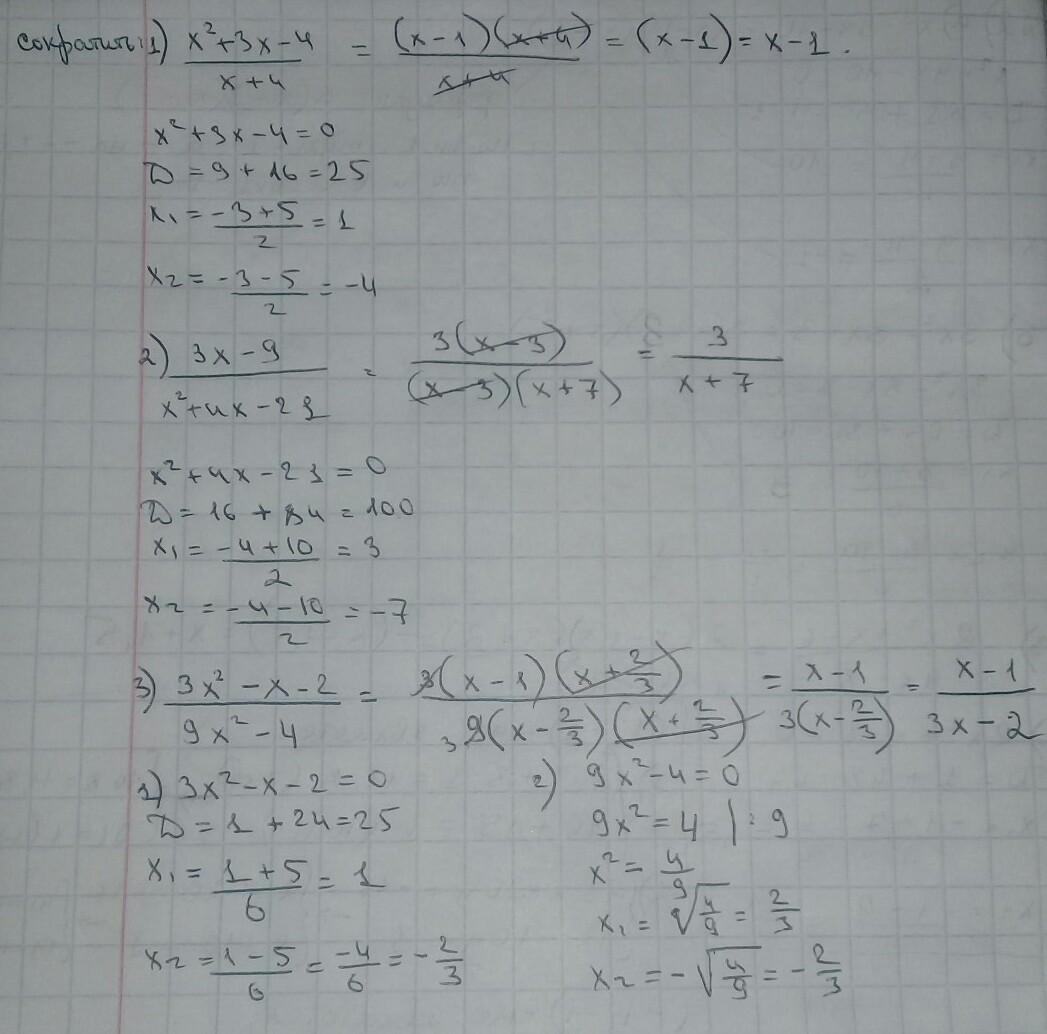 сократить: 1) (x² + 3x - 4)/(x + 4) = ((x - 1)(x + 4))/(x + 4) = (x - 1) = x - 1.
x² + 3x - 4 = 0
D = 9 + 16 = 25
x₁ = (-3 + 5)/2 = 1
x₂ = (-3 - 5)/2 = -4
2) (3x - 9)/(x² + 4x - 21) = (3(x - 3))/((x - 3)(x + 7)) = 3/(x + 7)
x² + 4x - 21 = 0
D = 16 + 84 = 100
x₁ = (-4 + 10)/2 = 3
x₂ = (-4 - 10)/2 = -7
3) (3x² - x - 2)/(9x² - 4) = (3(x - 1)(x + 2/3))/(3 9(x - 2/3)(x + 2/3)) = (x - 1)/(3(x - 2/3)) = (x - 1)/(3x - 2)
1) 3x² - x - 2 = 0
D = 1 + 24 = 25
x₁ = (1 + 5)/6 = 1
x₂ = (1 - 5)/6 = -4/6 = -2/3
2) 9x² - 4 = 0
9x² = 4 | : 9
x² = 4/9
x₁ = √(4/9) = 2/3
x₂ = -√(4/9) = -2/3